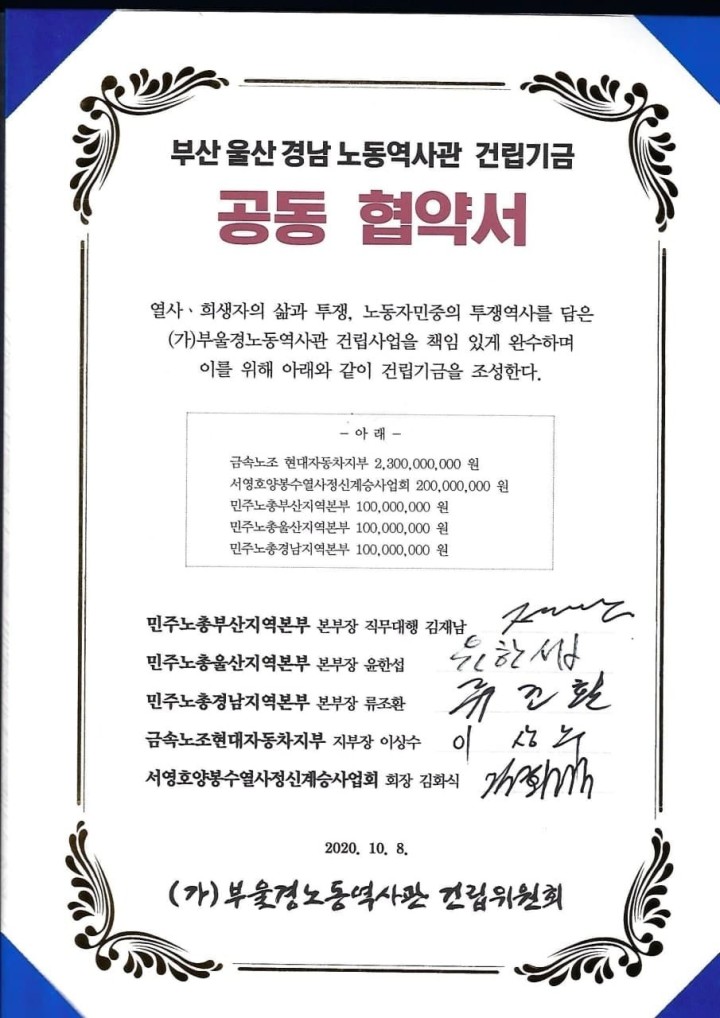 부산 울산 경남 노동역사관 건립기금
공동 협약서
열사、희생자의 삶과 투쟁, 노동자민중의 투쟁역사를 담은
(가)부울경노동역사관 건립사업을 책임 있게 완수하며
이를 위해 아래와 같이 건립기금을 조성한다.
- 아 래 -
금속노조 현대자동차지부 2,300,000,000 원
서영호양봉수열사정신계승사업회 200,000,000 원
민주노총부산지역본부 100,000,000 원
민주노총울산지역본부 100,000,000 원
민주노총경남지역본부 100,000,000 원
민주노총부산지역본부 본부장 직무대행 김재남
민주노총울산지역본부 본부장 윤한섭 윤한섭
민주노총경남지역본부 본부장 류조환 류조환
금속노조현대자동차지부 지부장 이상수 이상수
서영호양봉수열사정신계승사업회 회장 김화식
2020. 10. 8.
(가)부울경노동역사관 건립위원회